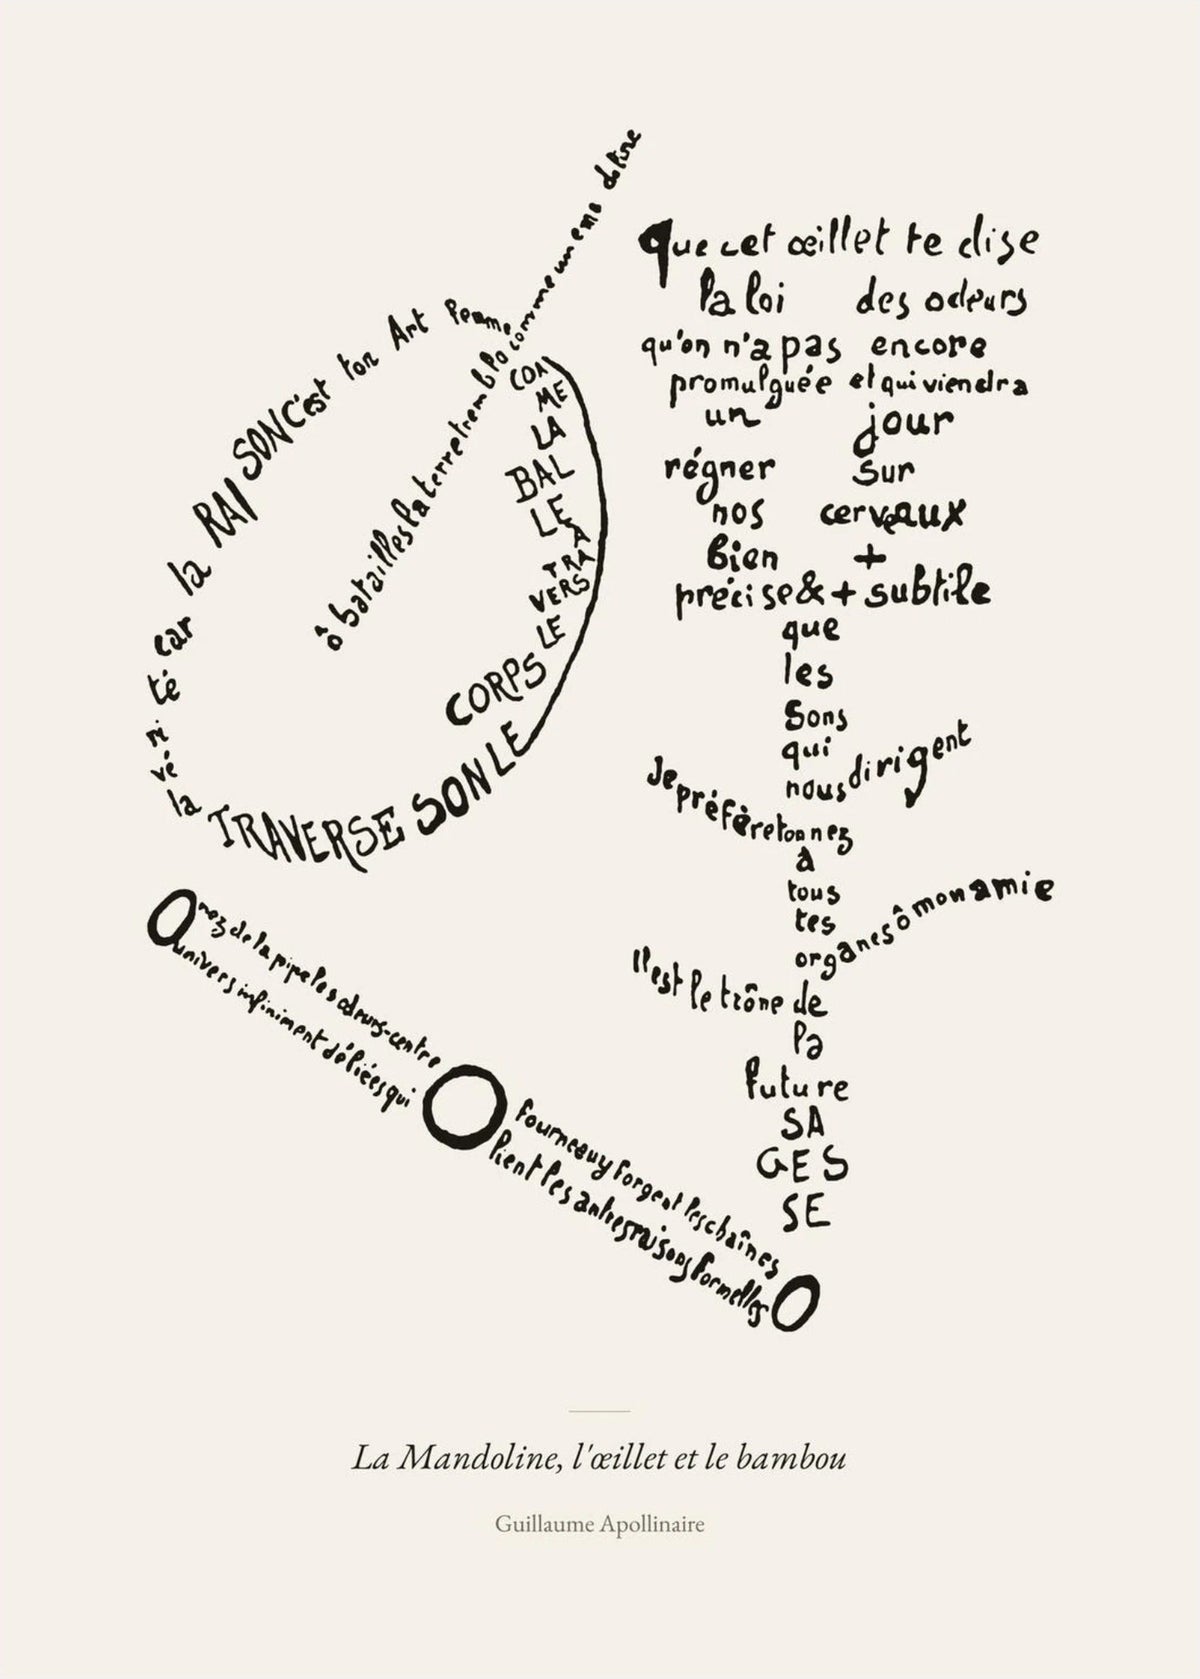 ô batailles la terre tremble comme une mandoline
COM
ME
LA
BAL
LE
À
TRA
VERS
LE
CORPS
LE SON TRAVERSE
la
vé
ri
té
car
la
RAI
SON C'est ton Art Femme
que cet œillet te dise
la loi des odeurs
qu'on n'a pas encore
promulguée et qui viendra
un jour
régner sur
nos cerveaux
bien +
précise & + subtile
que
les
sons
qui
nous dirigent
Je préfère ton nez
à
tous
tes
organes ô mon amie
Il est le trône de
la
future
SA
GES
SE
O nez de la pipe les odeurs-centre
O fourneau y forgent les chaînes
univers infiniment déliées qui
lient les autres raisons formelles
O
La Mandoline, l'œillet et le bambou
Guillaume Apollinaire